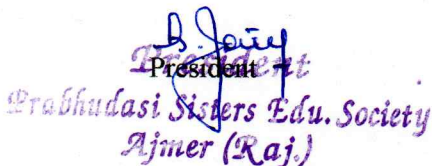 President
President
Prabhudasi Sisters Edu. Society
Ajmer (Raj.)